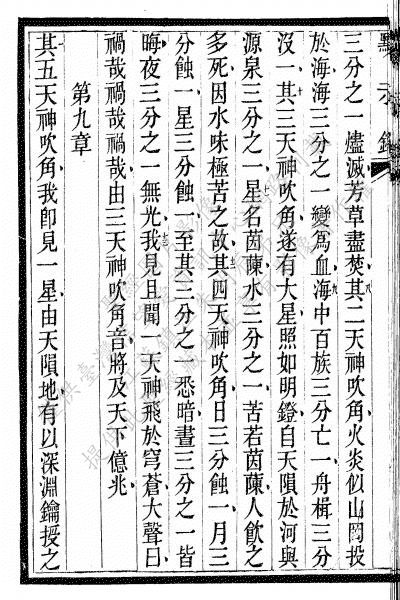 三分之一燼滅芳草盡焚其二天神吹角火炎似山岡投
於海海三分之一變爲血海中百族三分亡一舟楫三分
沒一其三天神吹角遂有大星照如明鐙自天隕於河與
源泉三分之一星名茵蔯水三分之一苦若茵蔯人飮之
多死因水味極苦之故其四天神吹角日三分蝕一月三
分蝕一星三分蝕一至其三分之一悉暗晝三分之一皆
晦夜三分之一無光我見且聞一天神飛於穹蒼大聲曰
禍哉禍哉禍哉由三天神吹角音將及天下億兆
第九章
其五天神吹角我卽見一星由天隕地有以深淵鑰授之